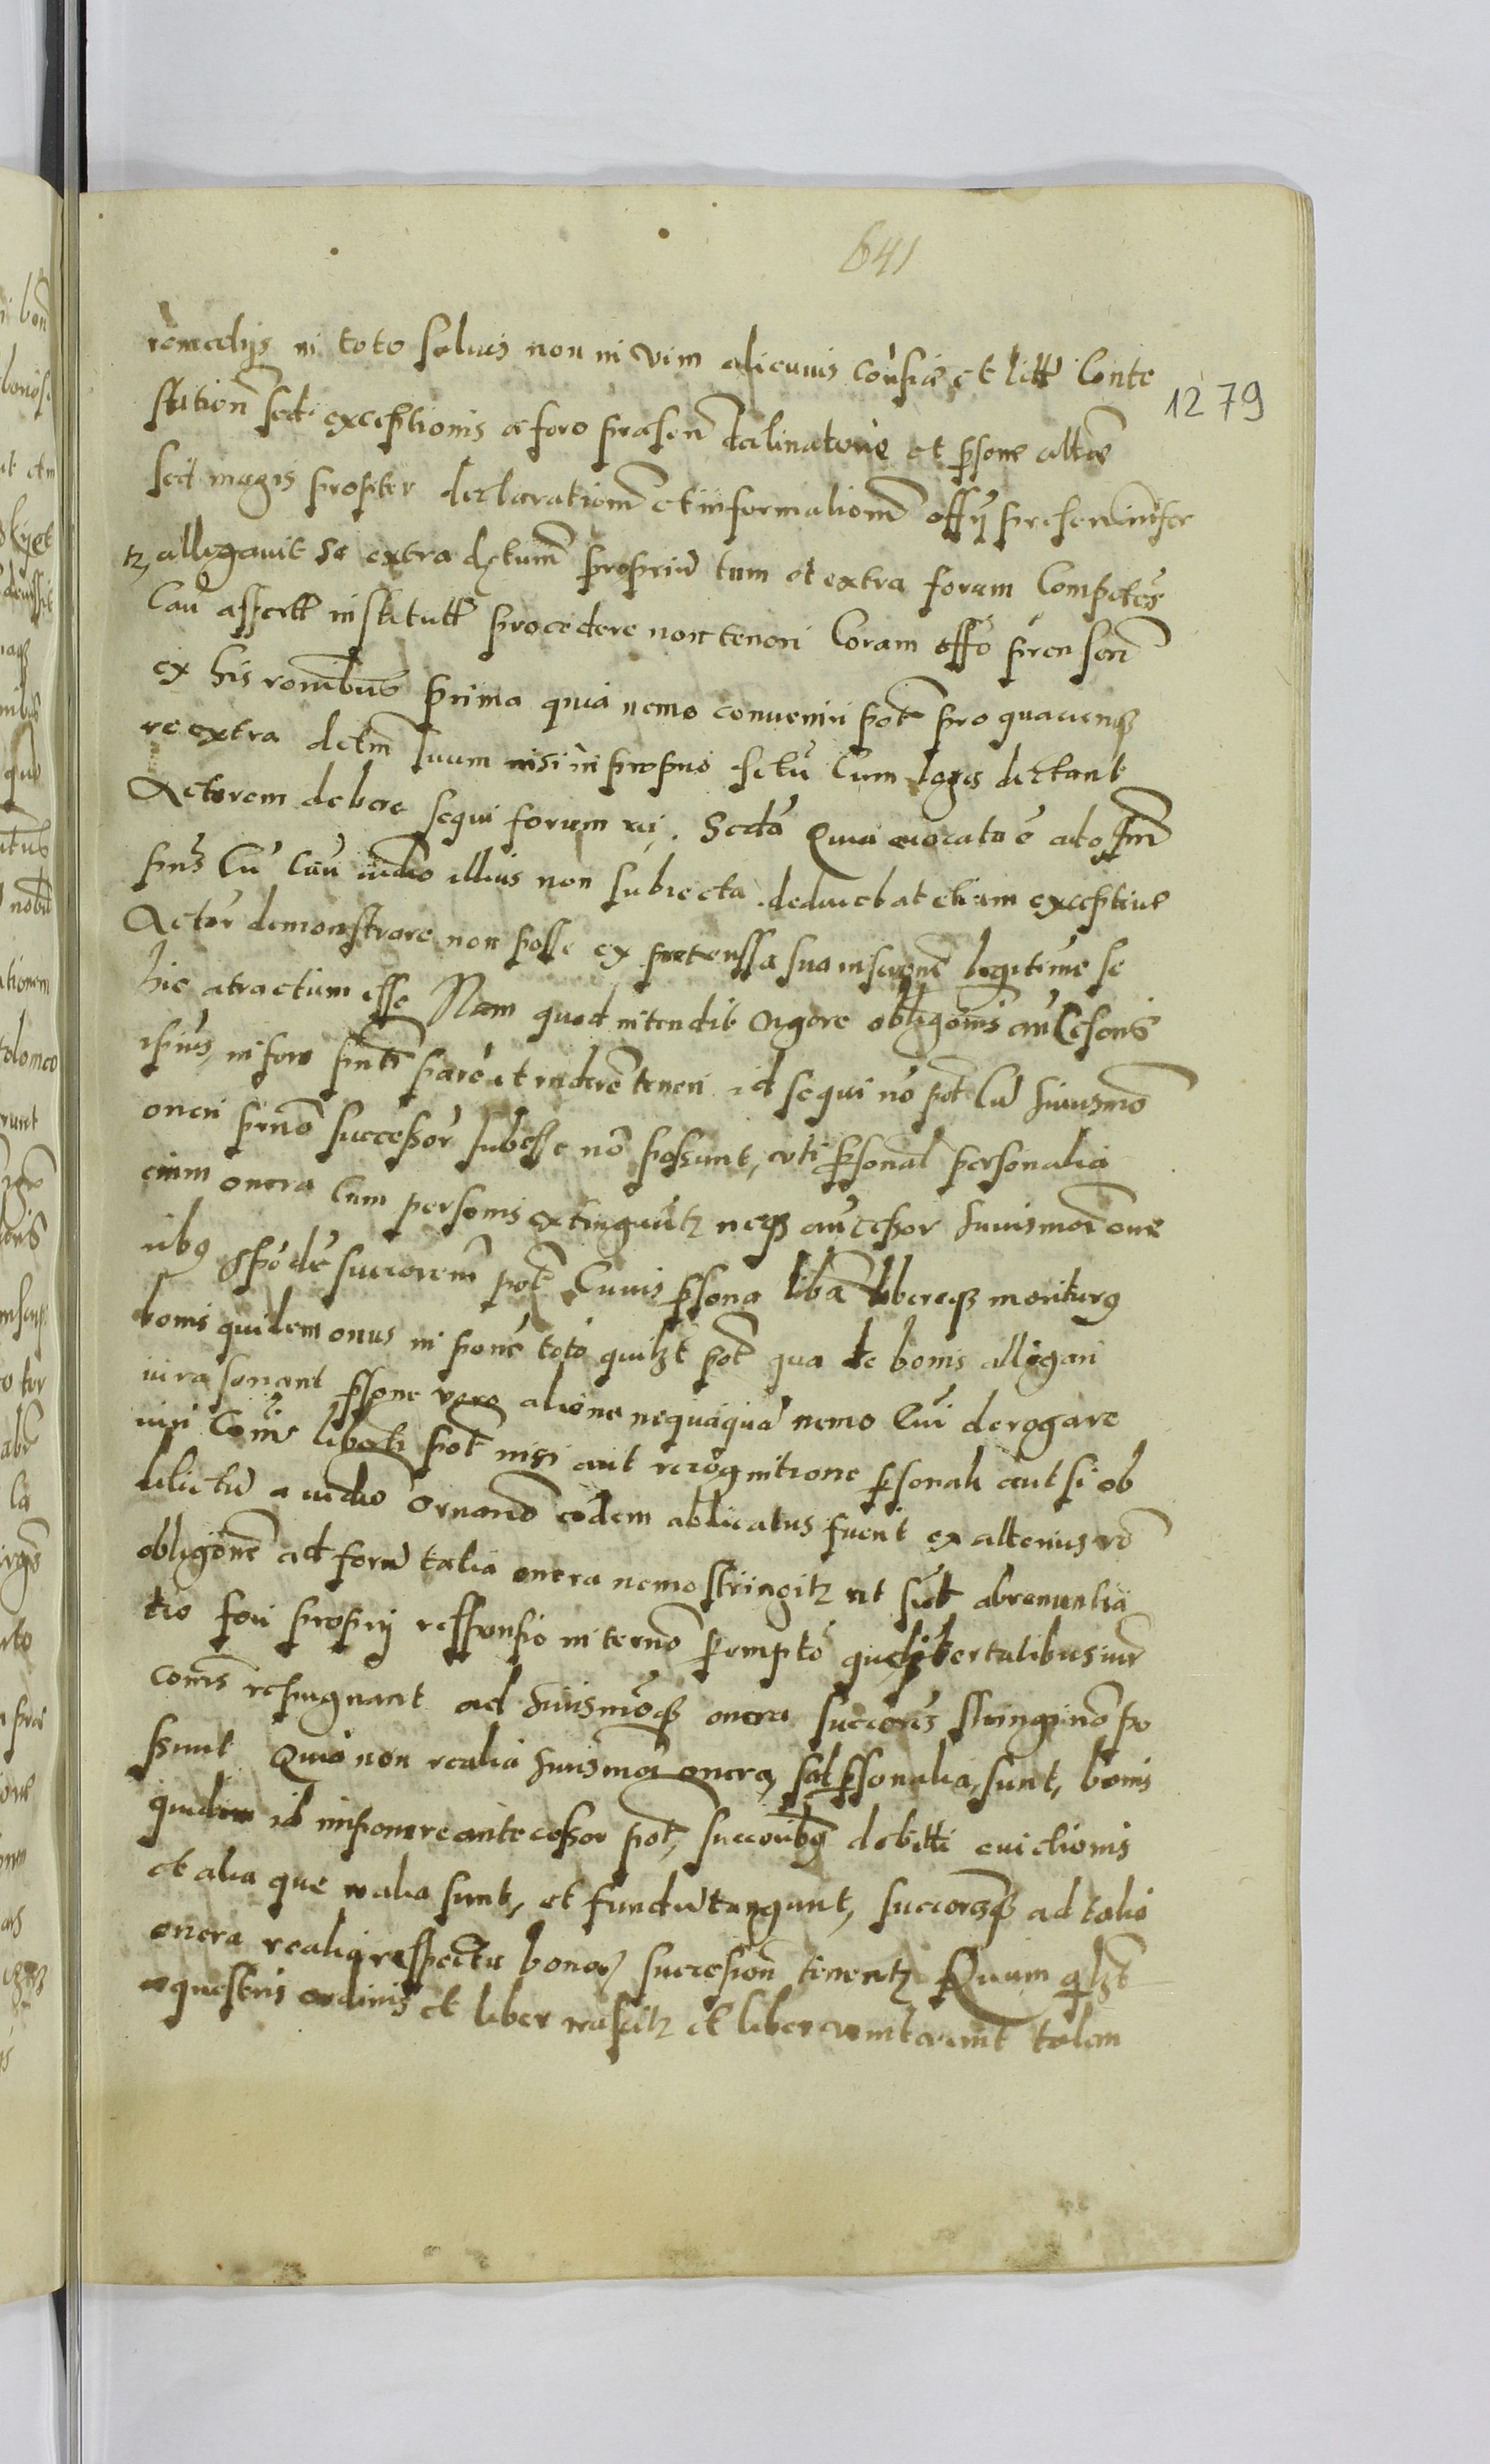 641
1279
remedijs in toto salvis non in vim alicuius Consiae et litt Conte
station sed exceptionis a foro praesen declinatorie et psone alterae
sed magis propter declarationem et informationem offij presen infer
tz, allegavit se extra dctum propriu tum et extra forum Competes
Cau assertt institutt procedere non teneri Coram offo praesen
ex his ronibus prima quia nemo conveniri pot pro quacunq
re extra dctm suum nisi in proprio situ Cum leges dictant
Actorem debere sequi forum rei. Secda Quia evocatu e ad off
pns Cu Cau iudio illius non subiecta. deducebat etiam exceptive
Actor demonstrare non posse ex pretenssa sua inscrione legitime se
hic atractum esse Nam quod intendit vigore obligonis antcesoris
ipius, in foro pnti pare et rndere teneri id sequi no pot Cu huiusmo
oneri pmo successor subesse no possunt, uti psonal personalia
enim onera Cum personis extinguutz neq antcessor huiusmoi one
ribq spode succorem pot Cuius psona liba libereq moriturq
bonis quidem onus in pone toto quilzt pot qua de bonis allegari
iura sonant psone vero aliene nequaqua nemo Cui derogare
iuri Coi libertti pot nisi aut recognitione psonali aut si ob
delictu a iudio Ornario eidem abdicatus fuerit ex alterius ro
obligone ad foru talia onera nemo stringitz ut sut abrenuntia
tio fori proprij responsio in terno pempto que libertatibus iur
cois repugnant ad huiusmoq onera succores stringi no po
ssunt Quia non realia huiusmoi onera, sed psonalia, sunt, bonis
quidem id imponere antecessor pot, succoribq debitti evictionis
et alia que realia sunt, et fundu tangunt, succoresq ad talia
onera realia respectu bonor succesion tenentz Quum qlzt
equestris ordinis et liber nascitz et liber talem